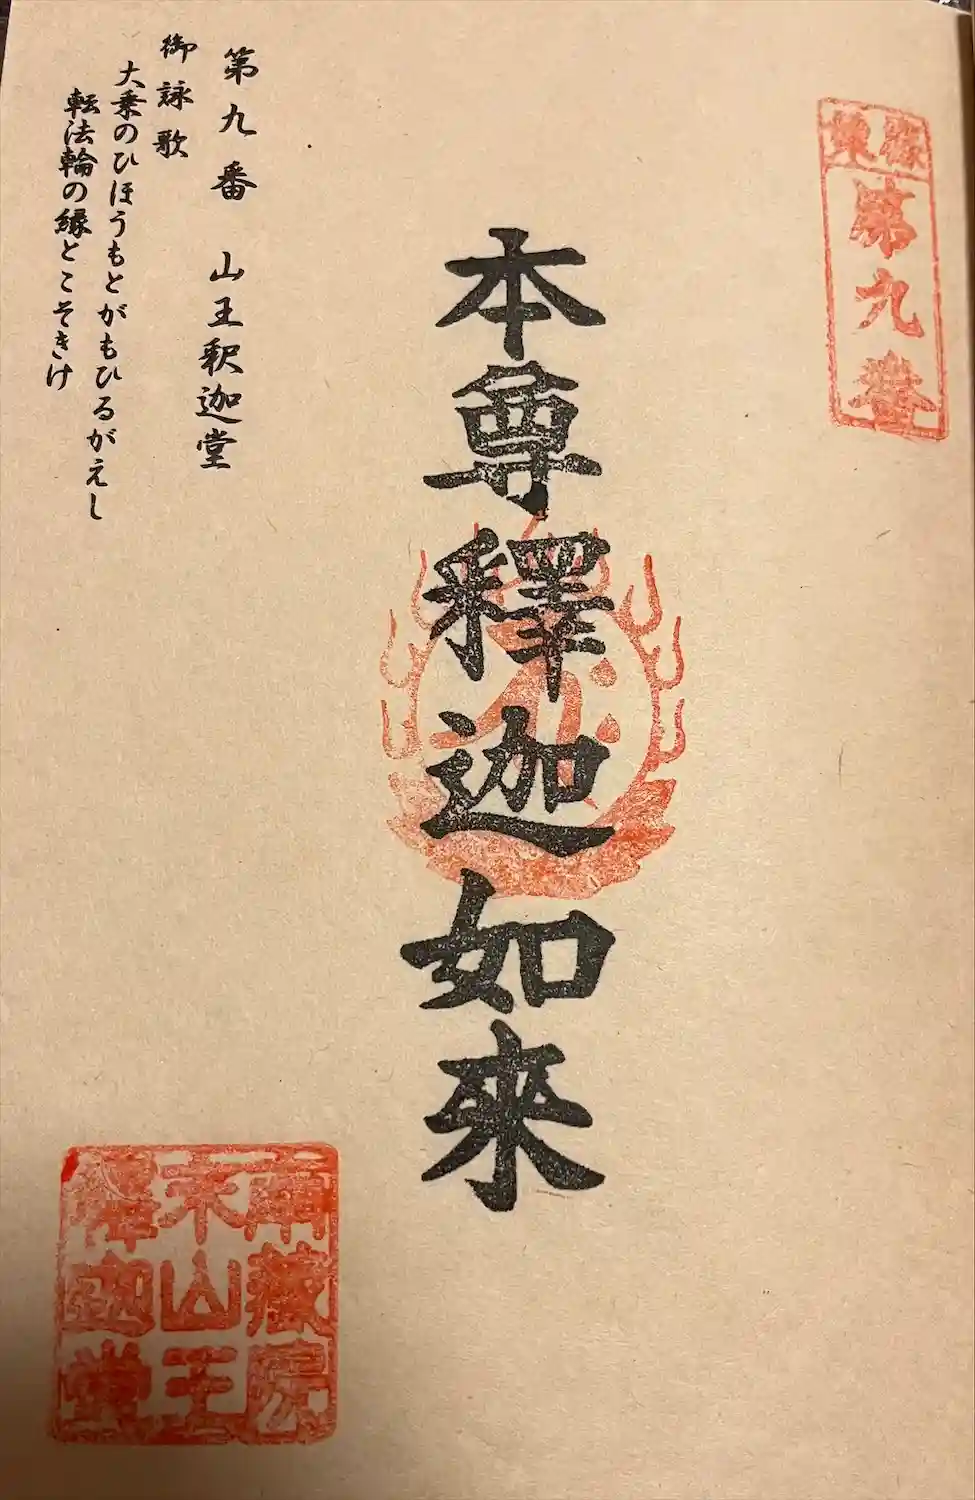 第九番
本尊釋迦如來
第九番 山王釈迦堂
御詠歌
大乗のひほうもとがもひるがえし
転法輪の縁とこそきけ
南藏院
末山王
釋迦堂